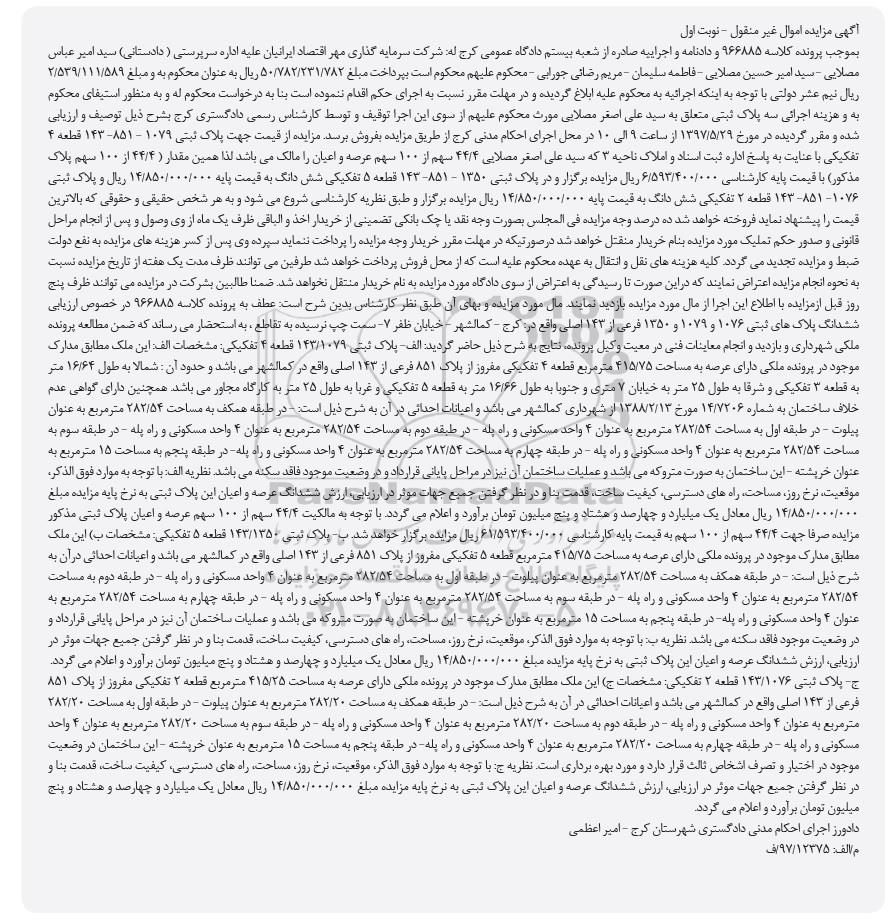 آگهی مزایده اموال غیر منقول - نوبت اول
بموجب پرونده کلاسه ۹۶۶۸۸۵ و دادنامه و اجراییه صادره از شعبه بیستم دادگاه عمومی کرج له: شرکت سرمایه گذاری مهر اقتصاد ایرانیان علیه اداره سرپرستی ( دادستانی) سید امیر عباس
مصلایی - سید امیر حسین مصلایی - فاطمه سلیمان - مریم رضائی جورابی - محکوم علیهم محکوم است بپرداخت مبلغ ۵۰/۷۸۲/۲۳۱/۷۸۲ ریال به عنوان محکوم به و مبلغ ۲/۵۳۹/۱۱۱/۵۸۹
ریال نیم عشر دولتی با توجه به اینکه اجرائیه به محکوم علیه ابلاغ گردیده و در مهلت مقرر نسبت به اجرای حکم اقدام ننموده است بنا به درخواست محکوم له و به منظور استیفای محکوم
به و هزینه اجرائی سه پلاک ثبتی متعلق به سید علی اصغر مصلایی مورث محکوم علیهم از سوی این اجرا توقیف و توسط کارشناس رسمی دادگستری کرج بشرح ذیل توصیف و ارزیابی
شده و مقرر گردیده در مورخ ۱۳۹۷/۵/۲۹ از ساعت ۹ الی ۱۰ در محل اجرای احکام مدنی کرج از طریق مزایده بفروش برسد. مزایده از قیمت جهت پلاک ثبتی ۱۰۷۹ - ۸۵۱- ۱۴۳ قطعه ۴
تفکیکی با عنایت به پاسخ اداره ثبت اسناد و املاک ناحیه ۳ که سید علی اصغر مصلایی ۴۴/۴ سهم از ۱۰۰ سهم عرصه و اعیان را مالک می باشد لذا همین مقدار ( ۴۴/۴ از ۱۰۰ سهم پلاک
مذکور) با قیمت پایه کارشناسی ۶/۵۹۳/۴۰۰/۰۰۰ ریال مزایده برگزار و در پلاک ثبتی ۱۳۵۰ - ۸۵۱- ۱۴۳ قطعه ۵ تفکیکی شش دانگ به قیمت پایه ۱۴/۸۵۰/۰۰۰/۰۰۰ ریال و پلاک ثبتی
۱۰۷۶- ۸۵۱- ۱۴۳ قطعه ۲ تفکیکی شش دانگ به قیمت پایه ۱۴/۸۵۰/۰۰۰/۰۰۰ ریال مزایده برگزار و طبق نظریه کارشناسی شروع می شود و به هر شخص حقیقی و حقوقی که بالاترین
قیمت را پیشنهاد نماید فروخته خواهد شد ده درصد وجه مزایده فی المجلس بصورت وجه نقد یا چک بانکی تضمینی از خریدار اخذ و الباقی ظرف یک ماه از وی وصول و پس از انجام مراحل
قانونی و صدور حکم تملیک مورد مزایده بنام خریدار منتقل خواهد شد درصورتیکه در مهلت مقرر خریدار وجه مزایده را پرداخت ننماید سپرده وی پس از کسر هزینه های مزایده به نفع دولت
ضبط و مزایده تجدید می گردد. کلیه هزینه های نقل و انتقال به عهده محکوم علیه است که از محل فروش پرداخت خواهد شد طرفین می توانند ظرف مدت یک هفته از تاریخ مزایده نسبت
به نحوه انجام مزایده اعتراض نمایند که دراین صورت تا رسیدگی به اعتراض از سوی دادگاه مورد مزایده به نام خریدار منتقل نخواهد شد. ضمنا طالبین بشرکت در مزایده می توانند ظرف پنج
روز قبل ازمزایده با اطلاع این اجرا از مال مورد مزایده بازدید نمایند. مال مورد مزایده و بهای آن طبق نظر کارشناس بدین شرح است: عطف به پرونده کلاسه ۹۶۶۸۸۵ در خصوص ارزیابی
ششدانگ پلاک های ثبتی ۱۰۷۶ و ۱۰۷۹ و ۱۳۵۰ فرعی از ۱۴۳ اصلی واقع در: کرج - کمالشهر - خیابان ظفر ۷- سمت چپ نرسیده به تقاطع ، به استحضار می رساند که ضمن مطالعه پرونده
ملکی شهرداری و بازدید و انجام معاینات فنی در معیت وکیل پرونده، نتایج به شرح ذیل حاضر گردید: الف- پلاک ثبتی ۱۴۳/۱۰۷۹ قطعه ۴ تفکیکی: مشخصات الف: این ملک مطابق مدارک
موجود در پرونده ملکی دارای عرصه به مساحت ۴۱۵/۷۵ مترمربع قطعه ۴ تفکیکی مفروز از پلاک ۸۵۱ فرعی از ۱۴۳ اصلی واقع در کمالشهر می باشد و حدود آن : شمالا به طول ۱۶/۶۴ متر
به قطعه ۳ تفکیکی و شرقا به طول ۲۵ متر به خیابان ۷ متری و جنوبا به طول ۱۶/۶۶ متر به قطعه ۵ تفکیکی و غربا به طول ۲۵ متر به کارگاه مجاور می باشد. همچنین دارای گواهی عدم
خلاف ساختمان به شماره ۱۴/۷۲۰۶ مورخ ۱۳۸۸/۲/۱۳ از شهرداری کمالشهر می باشد و اعیانات احداثی در آن به شرح ذیل است: - در طبقه همکف به مساحت ۲۸۲/۵۴ مترمربع به عنوان
پیلوت - در طبقه اول به مساحت ۲۸۲/۵۴ مترمربع به عنوان ۴ واحد مسکونی و راه پله - در طبقه دوم به مساحت ۲۸۲/۵۴ مترمربع به عنوان ۴ واحد مسکونی و راه پله - در طبقه سوم به
مساحت ۲۸۲/۵۴ مترمربع به عنوان ۴ واحد مسکونی و راه پله - در طبقه چهارم به مساحت ۲۸۲/۵۴ مترمربع به عنوان ۴ واحد مسکونی و راه پله- در طبقه پنجم به مساحت ۱۵ مترمربع به
عنوان خرپشته -این ساختمان به صورت متروکه می باشد و عملیات ساختمان آن نیز در مراحل پایانی قرارداد و در وضعیت موجود فاقد سکنه می باشد. نظریه الف: با توجه به موارد فوق الذکر،
موقعیت، نرخ روز، مساحت، راه های دسترسی، کیفیت ساخت، قدمت بنا و در نظر گرفتن جمیع جهات موثر در ارزیابی، ارزش ششدانگ عرصه و اعیان این پلاک ثبتی به نرخ پایه مزایده مبلغ
۱۴/۸۵۰/۰۰۰/۰۰۰ ریال معادل یک میلیارد و چهارصد و هشتاد و پنج میلیون تومان برآورد و اعلام می گردد. با توجه به مالکیت ۴۴/۴ سهم از ۱۰۰ سهم عرصه و اعیان پلاک ثبتی مذکور
مزایده صرفا جهت ۴۴/۴ سهم از ۱۰۰ سهم به قیمت پایه کارشناسی ۶۱/۵۹۳/۴۰۰/۰۰۰ ریال مزایده برگزار خواهد شد. ب- پلاک ثبتی ۱۴۳/۱۳۵۰ قطعه ۵ تفکیکی: مشخصات ب) این ملک
مطابق مدارک موجود در پرونده ملکی دارای عرصه به مساحت ۴۱۵/۷۵ مترمربع قطعه ۵ تفکیکی مفروز از پلاک ۸۵۱ فرعی از ۱۴۳ اصلی واقع در کمالشهر می باشد و اعیانات احداثی درآن به
شرح ذیل است: - در طبقه همکف به مساحت ۲۸۲/۵۴ مترمربع به عنوان پیلوت - در طبقه اول به مساحت ۲۸۲/۵۴ مترمربع به عنوان ۴ واحد مسکونی و راه پله - در طبقه دوم به مساحت
۲۸۲/۵۴ مترمربع به عنوان ۴ واحد مسکونی و راه پله - در طبقه سوم به مساحت ۲۸۲/۵۴ مترمربع به عنوان ۴ واحد مسکونی و راه پله - در طبقه چهارم به مساحت ۲۸۲/۵۴ مترمربع به
عنوان ۴ واحد مسکونی و راه پله- در طبقه پنجم به مساحت ۱۵ مترمربع به عنوان خرپشته - این ساختمان به صورت متروکه می باشد و عملیات ساختمان آن نیز در مراحل پایانی قرارداد و
در وضعیت موجود فاقد سکنه می باشد. نظریه ب: با توجه به موارد فوق الذکر، موقعیت، نرخ روز، مساحت، راه های دسترسی، کیفیت ساخت، قدمت بنا و در نظر گرفتن جمیع جهات موثر در
ارزیابی، ارزش ششدانگ عرصه و اعیان این پلاک ثبتی به نرخ پایه مزایده مبلغ ۱۴/۸۵۰/۰۰۰/۰۰۰ ریال معادل یک میلیارد و چهارصد و هشتاد و پنج میلیون تومان برآورد و اعلام می گردد.
ج- پلاک ثبتی ۱۴۳/۱۰۷۶ قطعه ۲ تفکیکی: مشخصات ج) این ملک مطابق مدارک موجود در پرونده ملکی دارای عرصه به مساحت ۴۱۵/۲۵ مترمربع قطعه ۲ تفکیکی مفروز از پلاک ۸۵۱
فرعی از ۱۴۳ اصلی واقع در کمالشهر می باشد و اعیانات احداثی در آن به شرح ذیل است: - در طبقه همکف به مساحت ۲۸۲/۲۰ مترمربع به عنوان پیلوت - در طبقه اول به مساحت ۲۸۲/۲۰
مترمربع به عنوان ۴ واحد مسکونی و راه پله - در طبقه دوم به مساحت ۲۸۲/۲۰ مترمربع به عنوان ۴ واحد مسکونی و راه پله - در طبقه سوم به مساحت ۲۸۲/۲۰ مترمربع به عنوان ۴ واحد
مسکونی و راه پله - در طبقه چهارم به مساحت ۲۸۲/۲۰ مترمربع به عنوان ۴ واحد مسکونی و راه پله- در طبقه پنجم به مساحت ۱۵ مترمربع به عنوان خرپشته - این ساختمان در وضعیت
موجود در اختیار و تصرف اشخاص ثالث قرار دارد و مورد بهره برداری است. نظریه ج: با توجه به موارد فوق الذکر، موقعیت، نرخ روز، مساحت، راه های دسترسی، کیفیت ساخت، قدمت بنا و
در نظر گرفتن جمیع جهات موثر در ارزیابی، ارزش ششدانگ عرصه و اعیان این پلاک ثبتی به نرخ پایه مزایده مبلغ ۱۴/۸۵۰/۰۰۰/۰۰۰ ریال معادل یک میلیارد و چهارصد و هشتاد و پنج
میلیون تومان برآورد و اعلام می گردد.
دادورز اجرای احکام مدنی دادگستری شهرستان کرج - امیر اعظمی
م/الف: ۹۷/۱۲۳۷۵/ف
ParsNamadData
۰۲۱-۸۸۳۴۹۶۷۰-۵